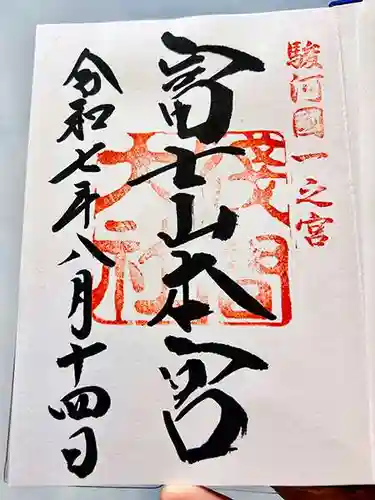 駿河國一之宮
富士山本宮
浅間大社
令和七年八月十四日